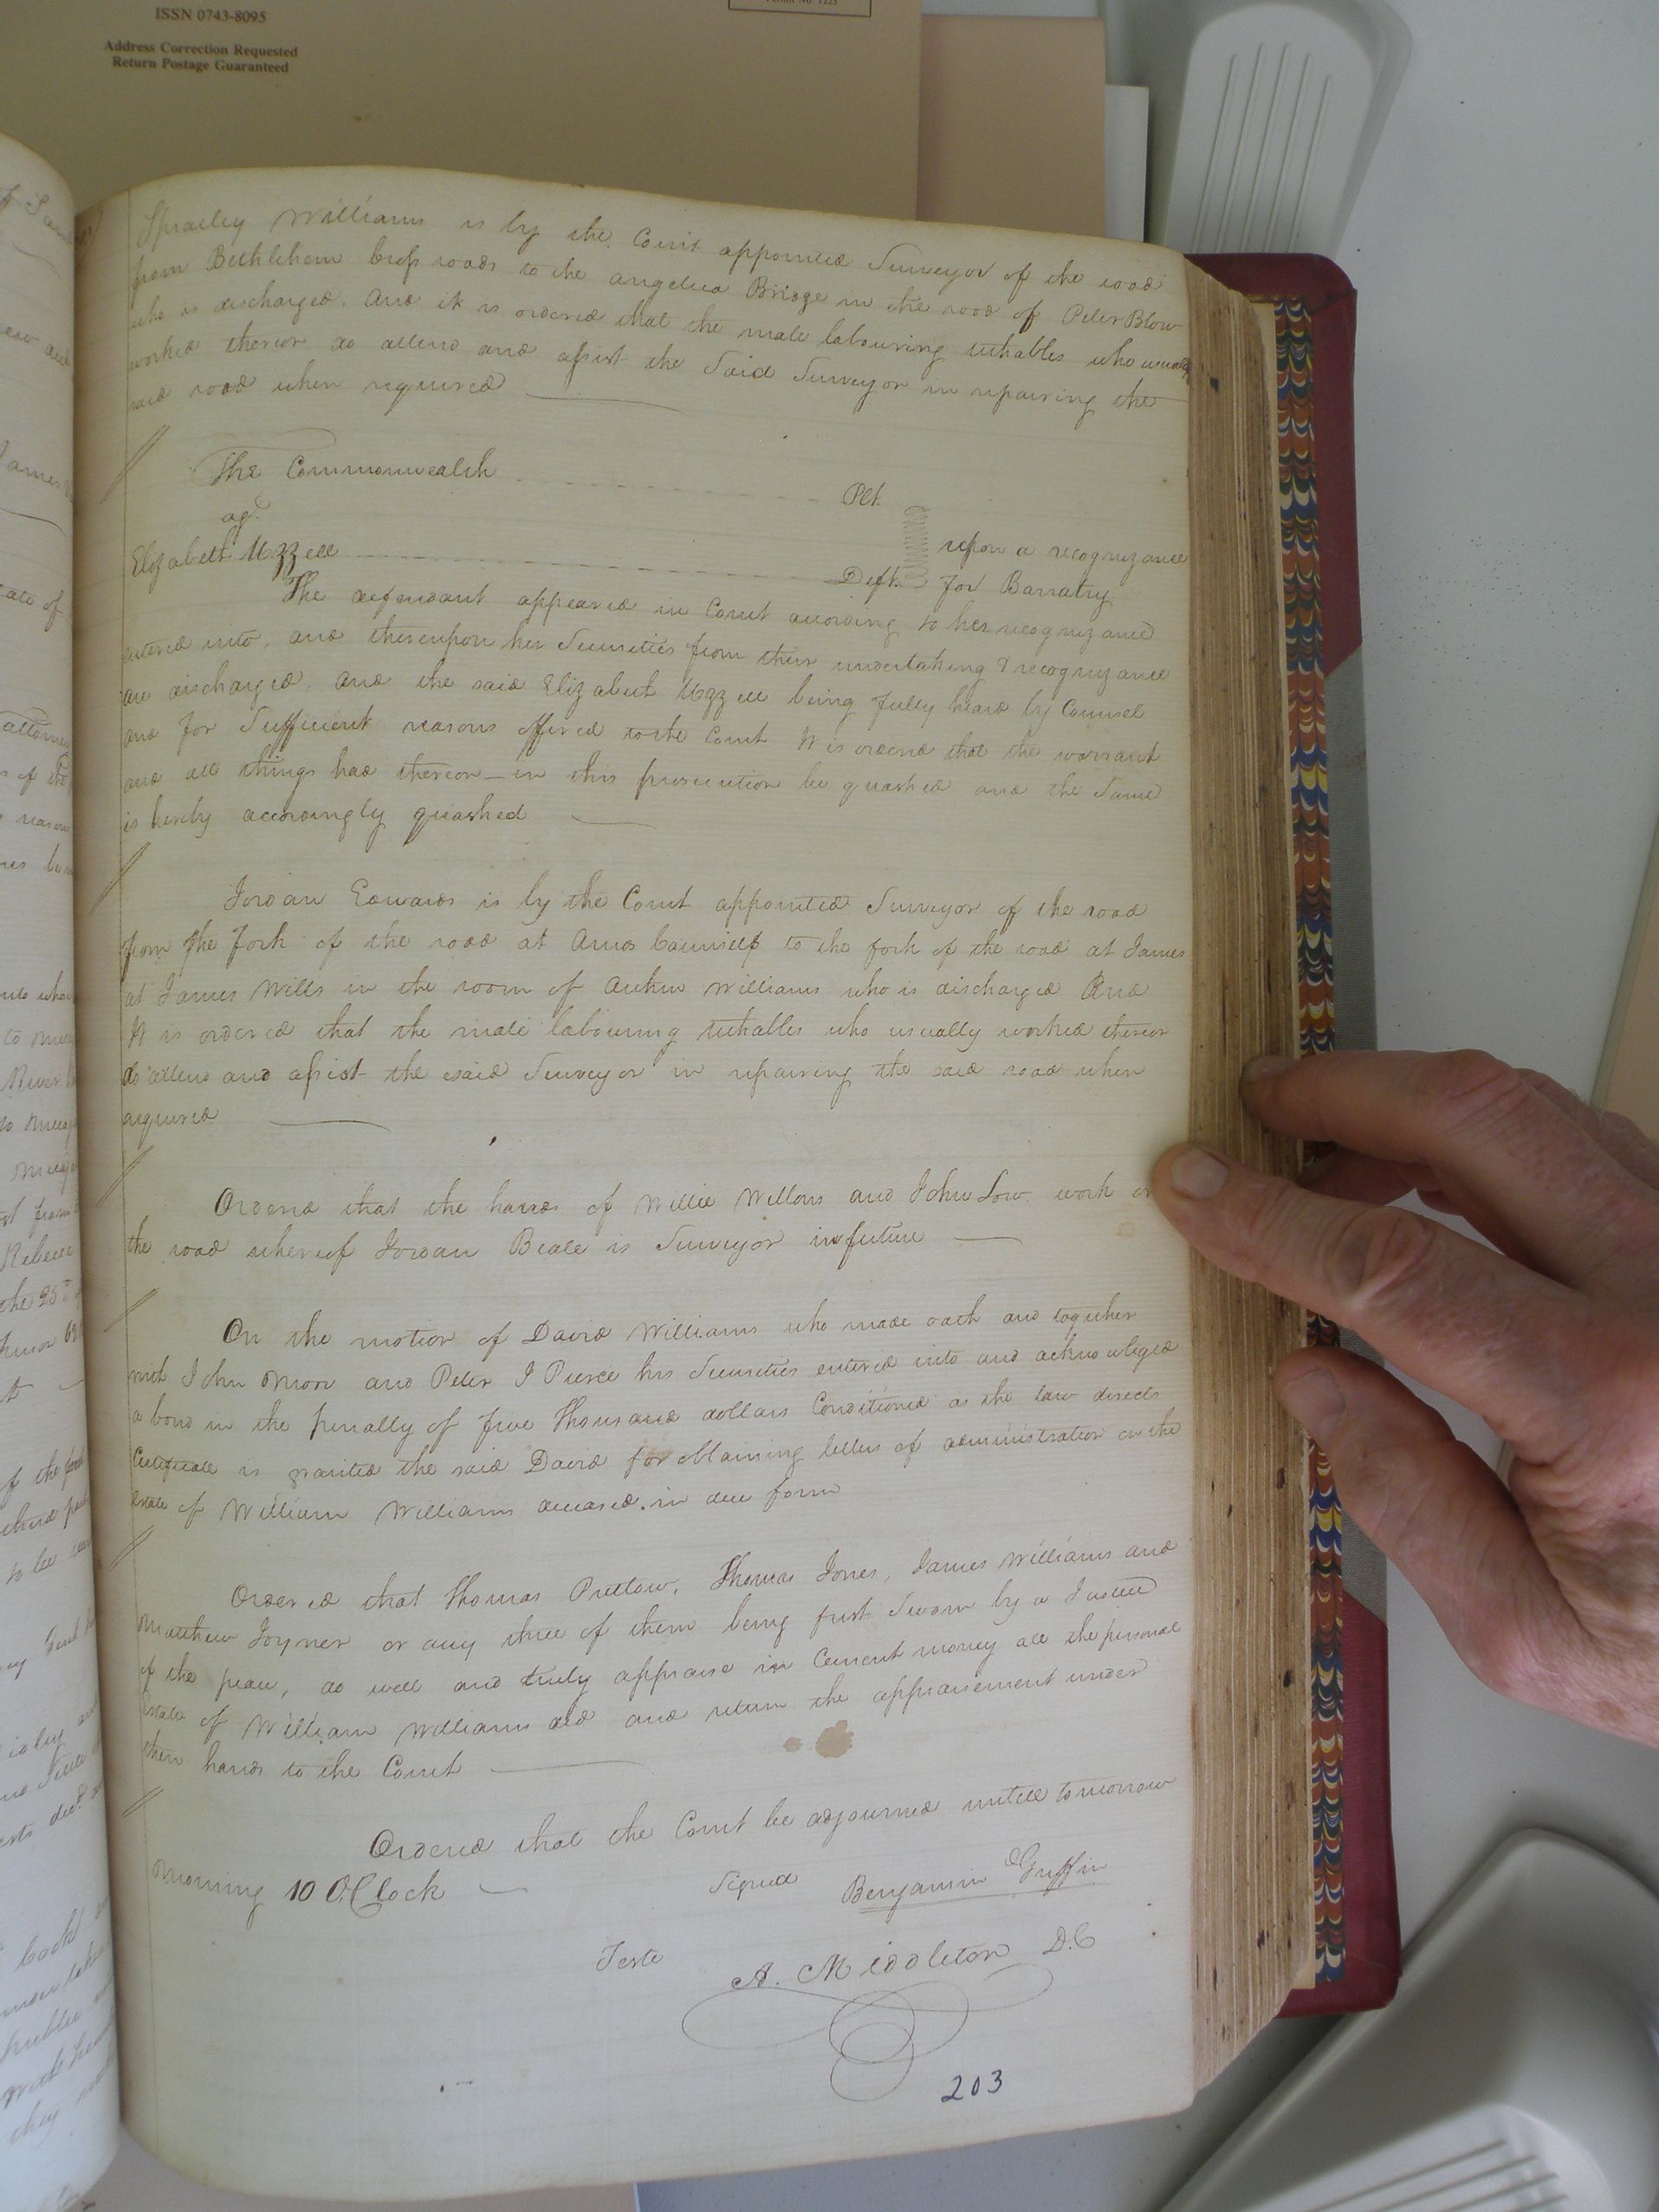 ISSN 0743-8095
Address Correction Requested
Return Postage Guaranteed
Williams is by the Court appointed Surveyor of the road
from Bethlehem Cross roads to the angelica Bridge in the room of Peter Blow
who is discharged. And it is ordered that the male labouring tithables who usually
worked thereon do attend and assist the Said Surveyor in repairing the
said road when required
The Commonwealth Plt.
agt
Elizabeth Uzzell Deft.
upon a recognizance
for Barratry
The defendant appeared in Court according to her recognizance
entered into, and thereupon her Securities from their undertaking & recognizance
are discharged, and the said Elizabeth Uzzell being fully heard by Counsel
and for Sufficient reasons offered to the Court It is ordered that the warrant
and all things had thereon in this prosecution be quashed and the Same
is hereby accordingly quashed
Jordan Edwards is by the Court appointed Surveyor of the road
from the Fork of the road at Amos to the fork of the road at James
at James Wills in the room of Williams who is discharged And
It is ordered that the male labouring tithables who usually worked thereon
do attend and assist the said Surveyor in repairing the said road when
required
Ordered that the hands of Willie and John Low work on
the road whereof Jordan Beale is Surveyor in future
On the motion of David Williams who made oath and together
with John Moore and Peter J Pierce his Securities entered into and acknowledged
a bond in the penalty of five Thousand dollars Conditioned as the law directs
Certificate is granted the said David for obtaining letters of administration on the
estate of William Williams deceased in due form
Ordered that Thomas Pretlow, Thomas Jones, James Williams and
Matthew Joyner or any three of them being first Sworn by a Justice
of the peace, do well and truly appraise in Current money all the personal
estate of William Williams decd and return the appraisement under
their hands to the Court
Ordered that the Court be adjourned untill tomorrow
morning 10 OClock
Signed Benjamin Griffin
Teste
A. Middleton D.C
203